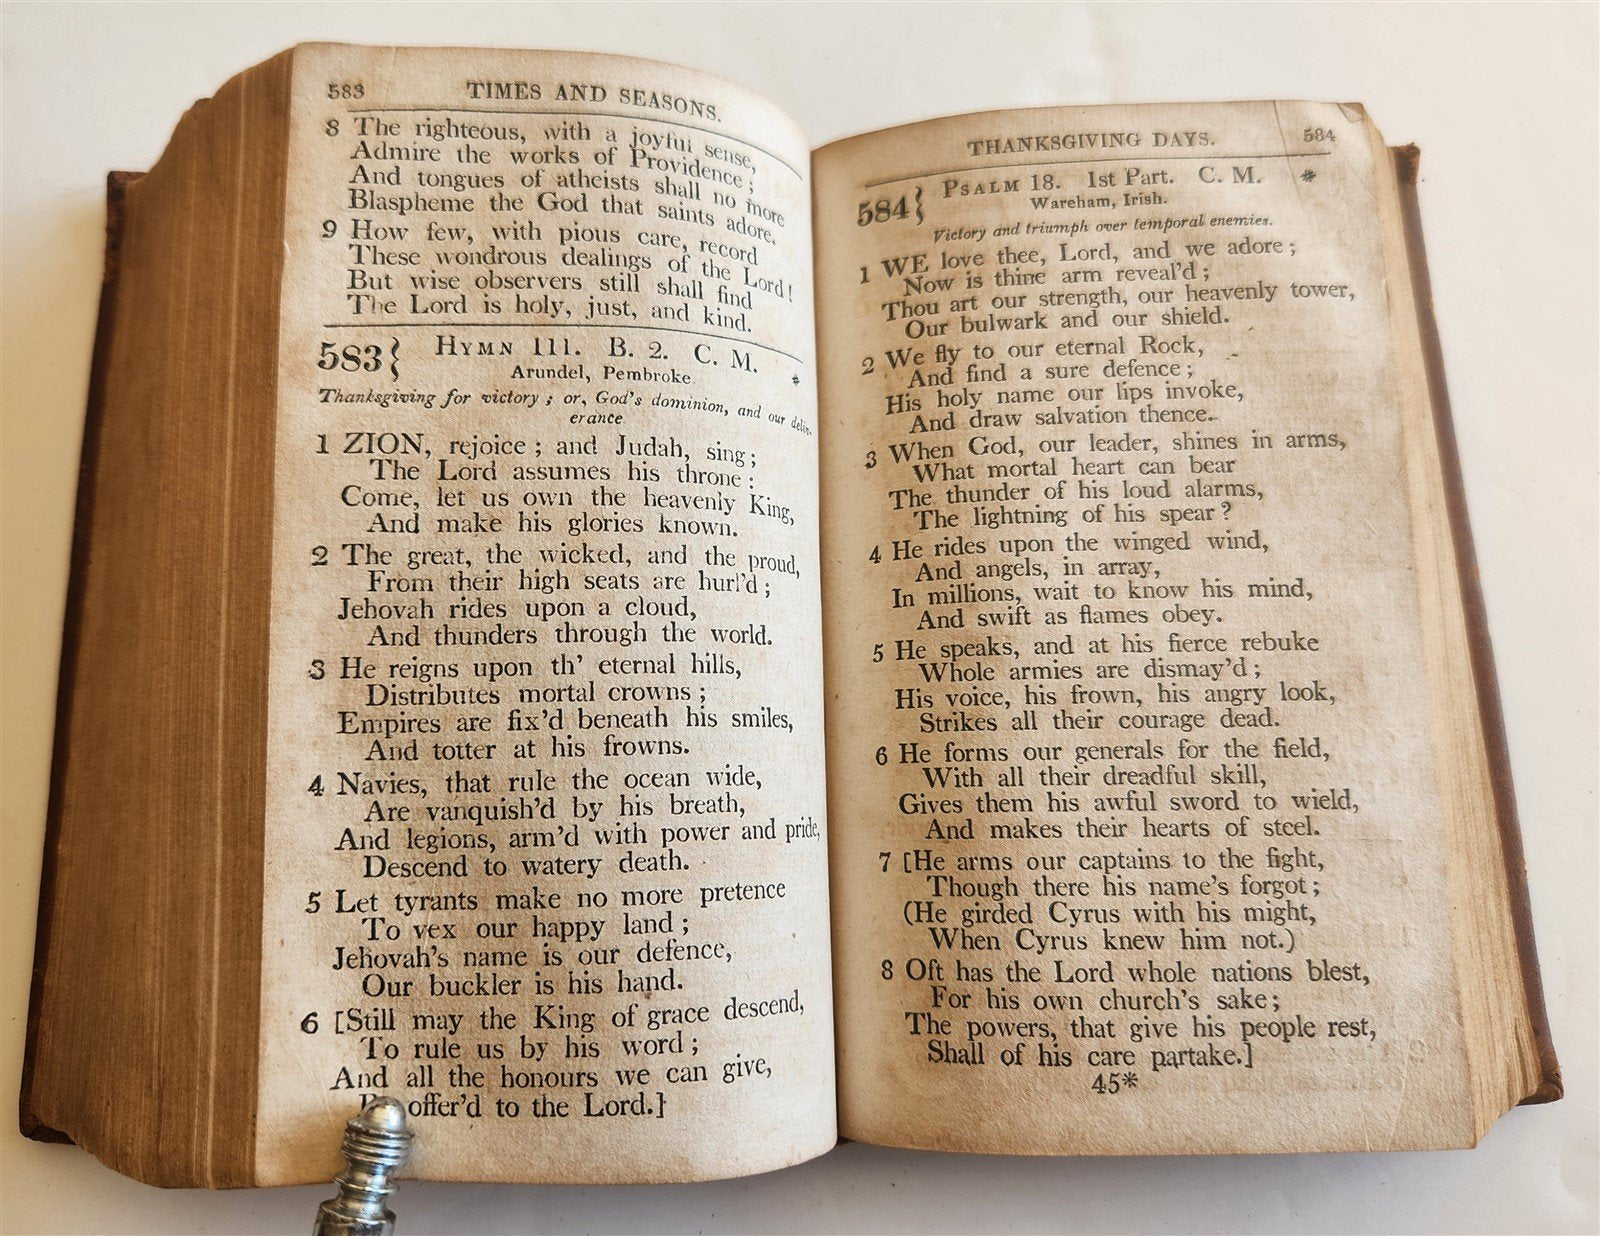 583 TIMES AND SEASONS.
8 The righteous, with a joyful sense,
Admire the works of Providence;
And tongues of atheists shall no more
Blaspheme the God that saints adore.
9 How few, with pious care, record
These wondrous dealings of the Lord!
But wise observers still shall find
The Lord is holy, just, and kind.
583} HYMN 111. B. 2. C. M. *
Arundel, Pembroke
Thanksgiving for victory; or, God's dominion, and our deliv-
erance
1 ZION, rejoice; and Judah, sing;
The Lord assumes his throne:
Come, let us own the heavenly King,
And make his glories known.
2 The great, the wicked, and the proud,
From their high seats are hurl'd;
Jehovah rides upon a cloud,
And thunders through the world.
3 He reigns upon th' eternal hills,
Distributes mortal crowns;
Empires are fix'd beneath his smiles,
And totter at his frowns.
4 Navies, that rule the ocean wide,
Are vanquish'd by his breath,
And legions, arm'd with power and pride,
Descend to watery death.
5 Let tyrants make no more pretence
To vex our happy land;
Jehovah's name is our defence,
Our buckler is his hand.
6 [Still may the King of grace descend,
To rule us by his word;
And all the honours we can give,
offer'd to the Lord.]
THANKSGIVING DAYS. 584
584} PSALM 18. 1st Part. C. M. *
Wareham, Irish.
Victory and triumph over temporal enemies.
1 WE love thee, Lord, and we adore;
Now is thine arm reveal'd;
Thou art our strength, our heavenly tower,
Our bulwark and our shield.
2 We fly to our eternal Rock,
And find a sure defence;
His holy name our lips invoke,
And draw salvation thence.
3 When God, our leader, shines in arms,
What mortal heart can bear
The thunder of his loud alarms,
The lightning of his spear?
4 He rides upon the winged wind,
And angels, in array,
In millions, wait to know his mind,
And swift as flames obey.
5 He speaks, and at his fierce rebuke
Whole armies are dismay'd;
His voice, his frown, his angry look,
Strikes all their courage dead.
6 He forms our generals for the field,
With all their dreadful skill,
Gives them his awful sword to wield,
And makes their hearts of steel.
7 [He arms our captains to the fight,
Though there his name's forgot;
(He girded Cyrus with his might,
When Cyrus knew him not.)
8 Oft has the Lord whole nations blest,
For his own church's sake;
The powers, that give his people rest,
Shall of his care partake.]
45*